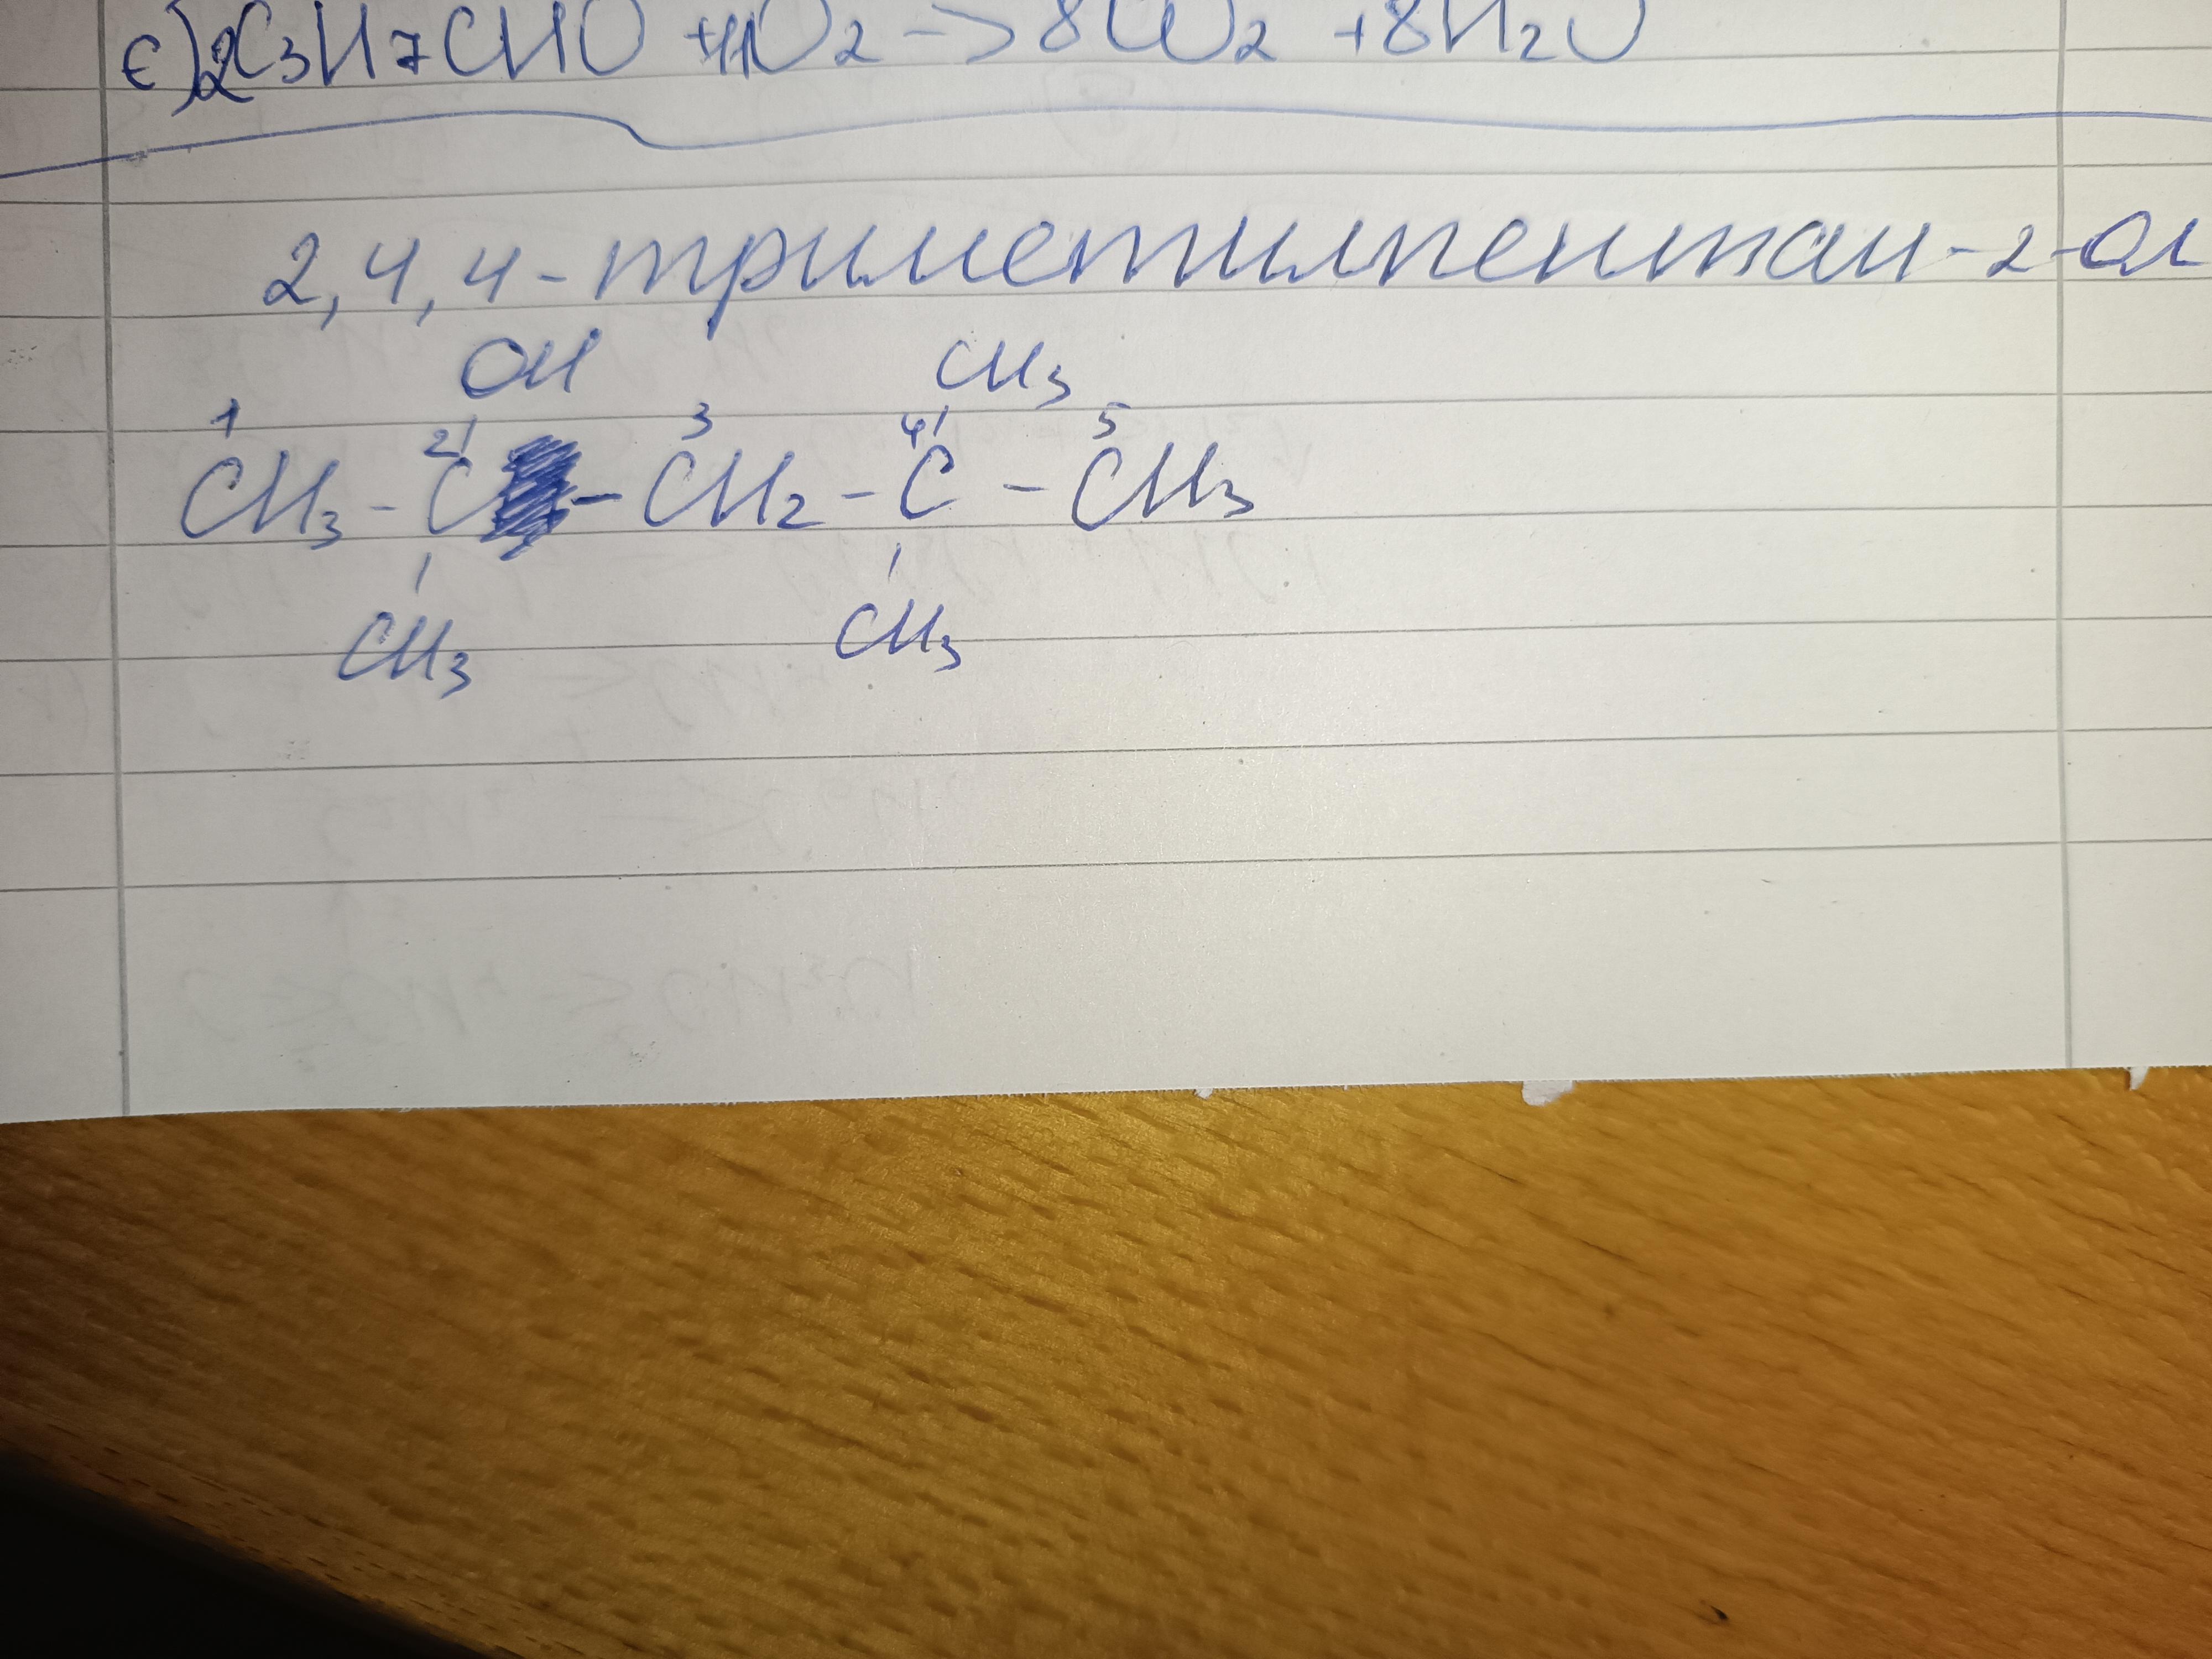 є) 2C3H7CHO + 11O2 -> 8CO2 + 8H2O
2,4,4-триметилпентан-2-ол
OH CH3
1 2 3 4 5
CH3 - C - CH2 - C - CH3
CH3 CH3